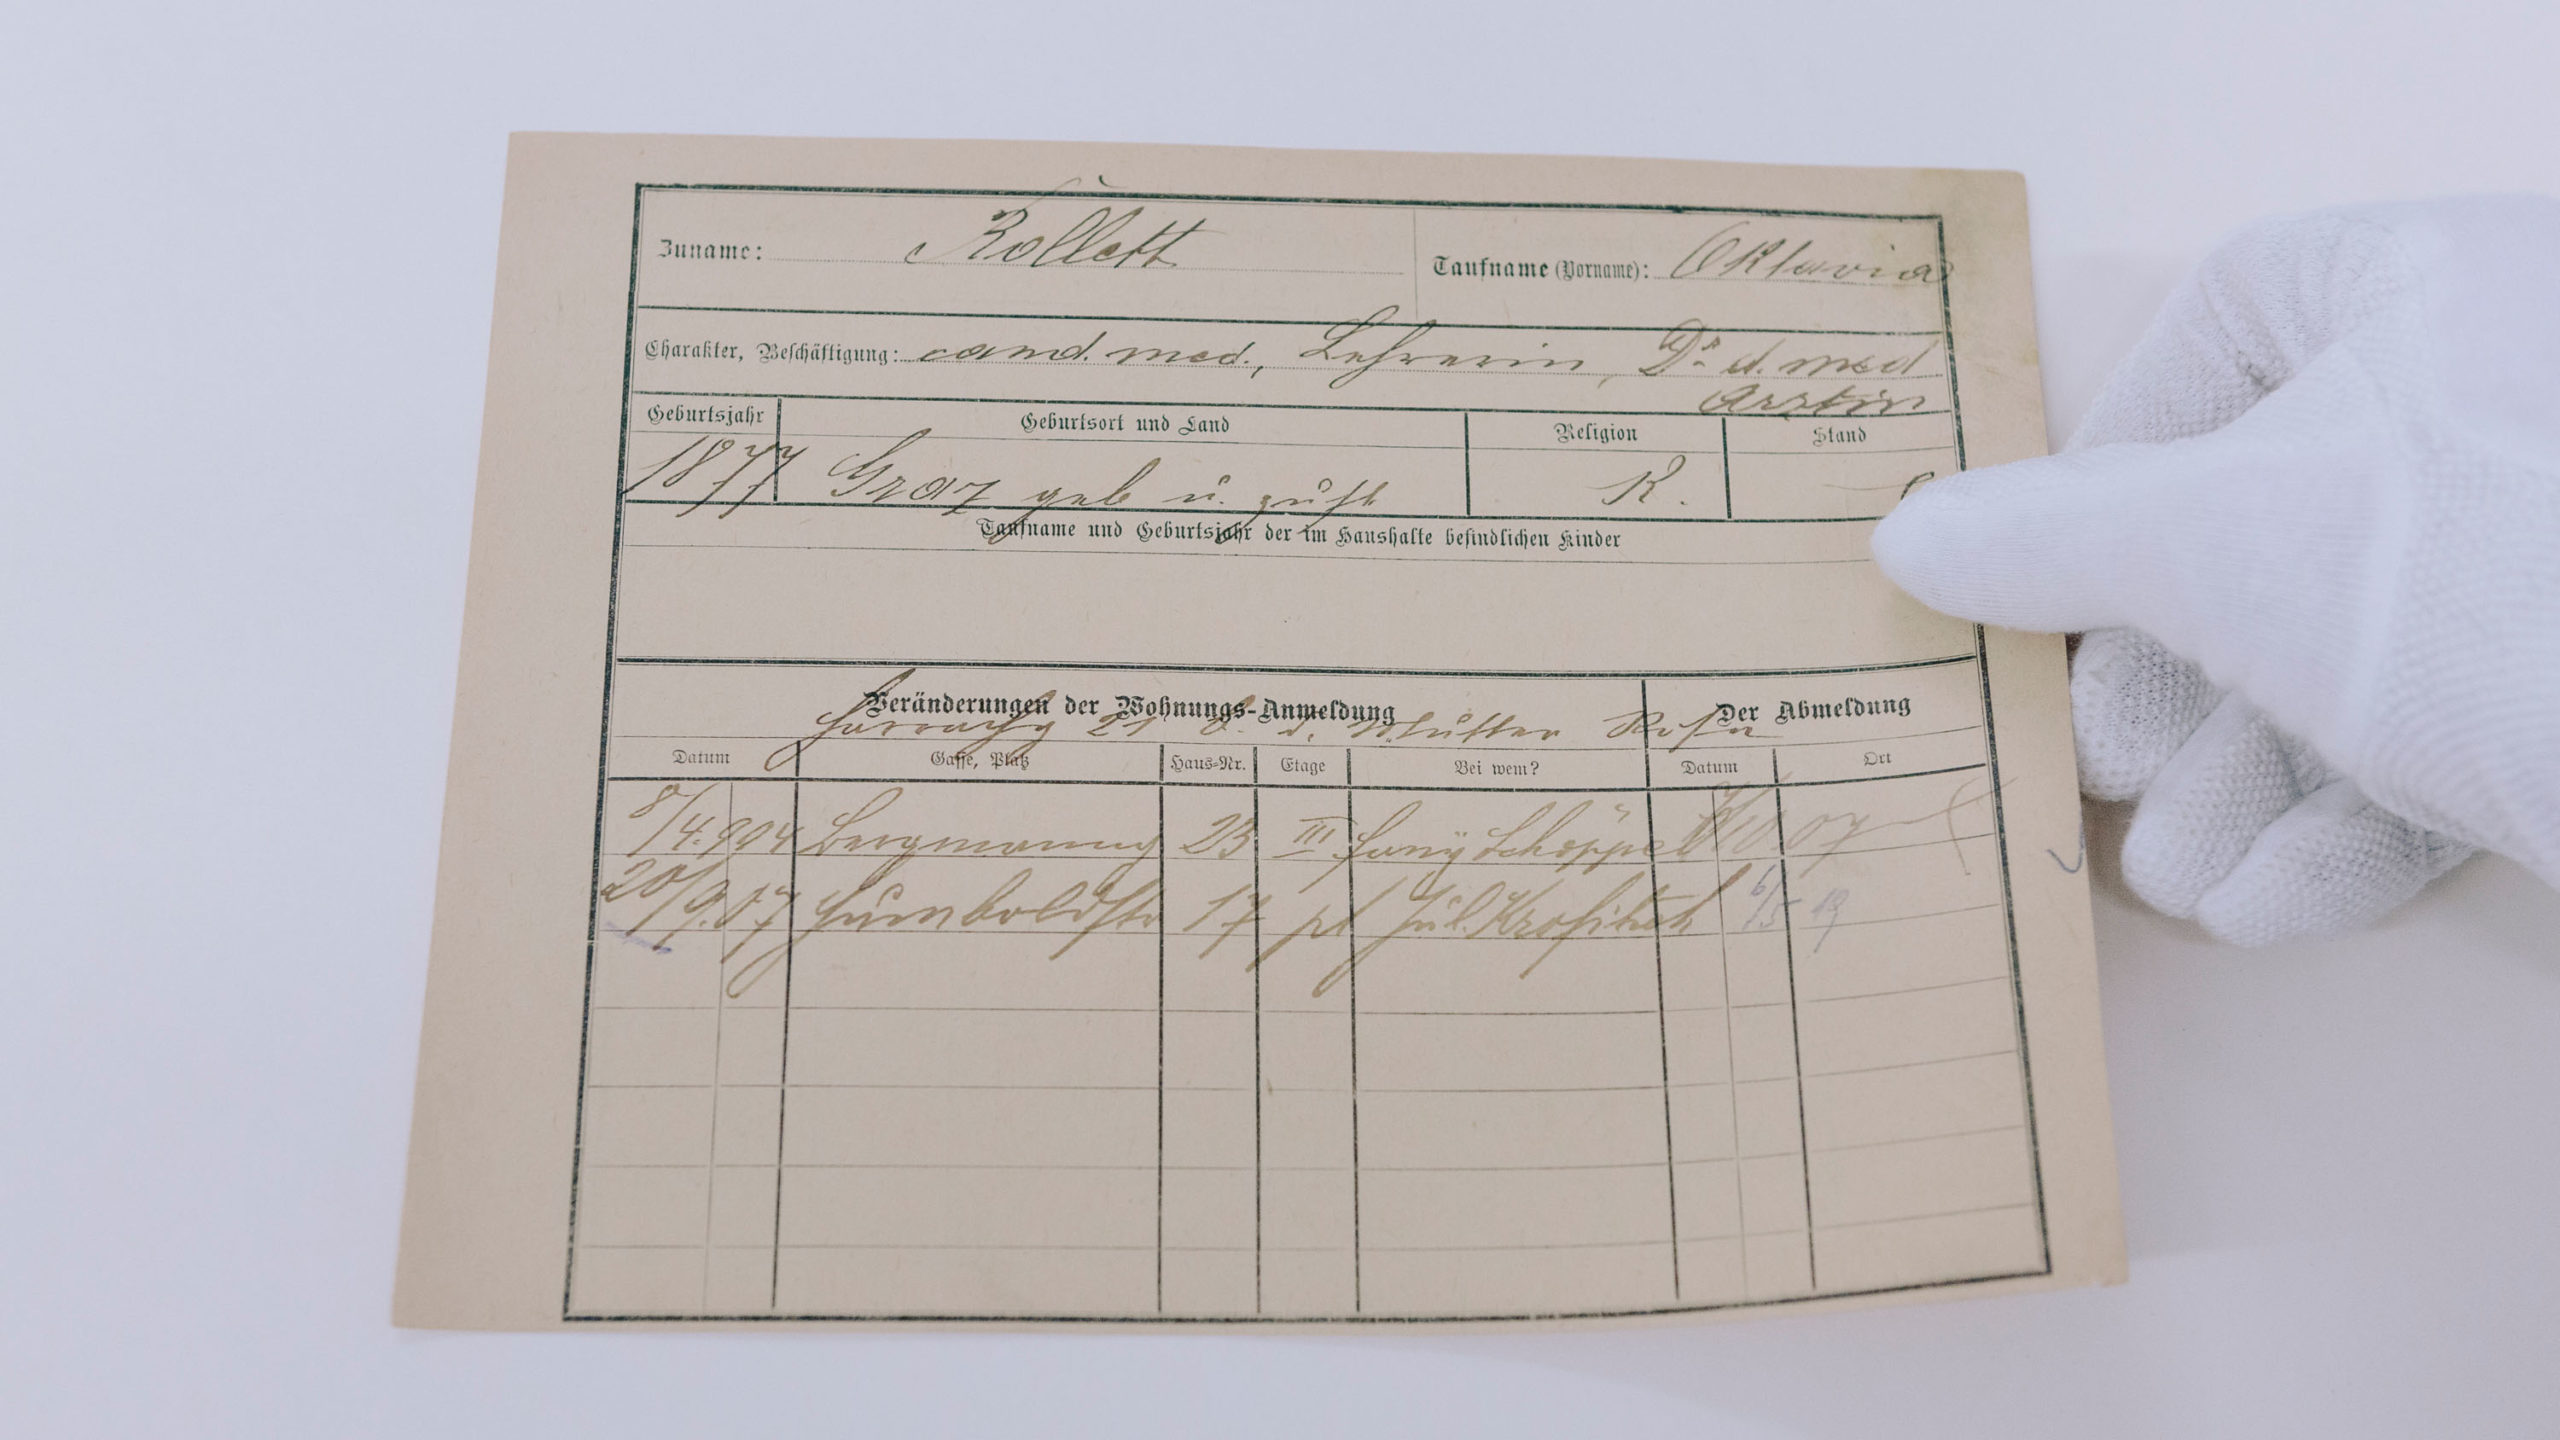 Zuname: Rollett Taufname (Vorname): Oktavia
Charakter, Beschäftigung: cand. med., Lehrerin, Dr. d. med
Ärztin
Geburtsjahr Geburtsort und Land Religion Stand
1877 Graz geb u. zust K.
Taufname und Geburtsjahr der im Haushalte befindlichen Kinder
Veränderungen der Wohnungs-Anmeldung Der Abmeldung
Harrachg 21 b. d. Mutter
Datum Gasse, Platz Haus-Nr. Etage Bei wem? Datum Ort
8/4.904 Bergmanng 23 III Fany Schöppel 10 07
20/9.07 Humboldstr 17 pt Jul. 6/5 19